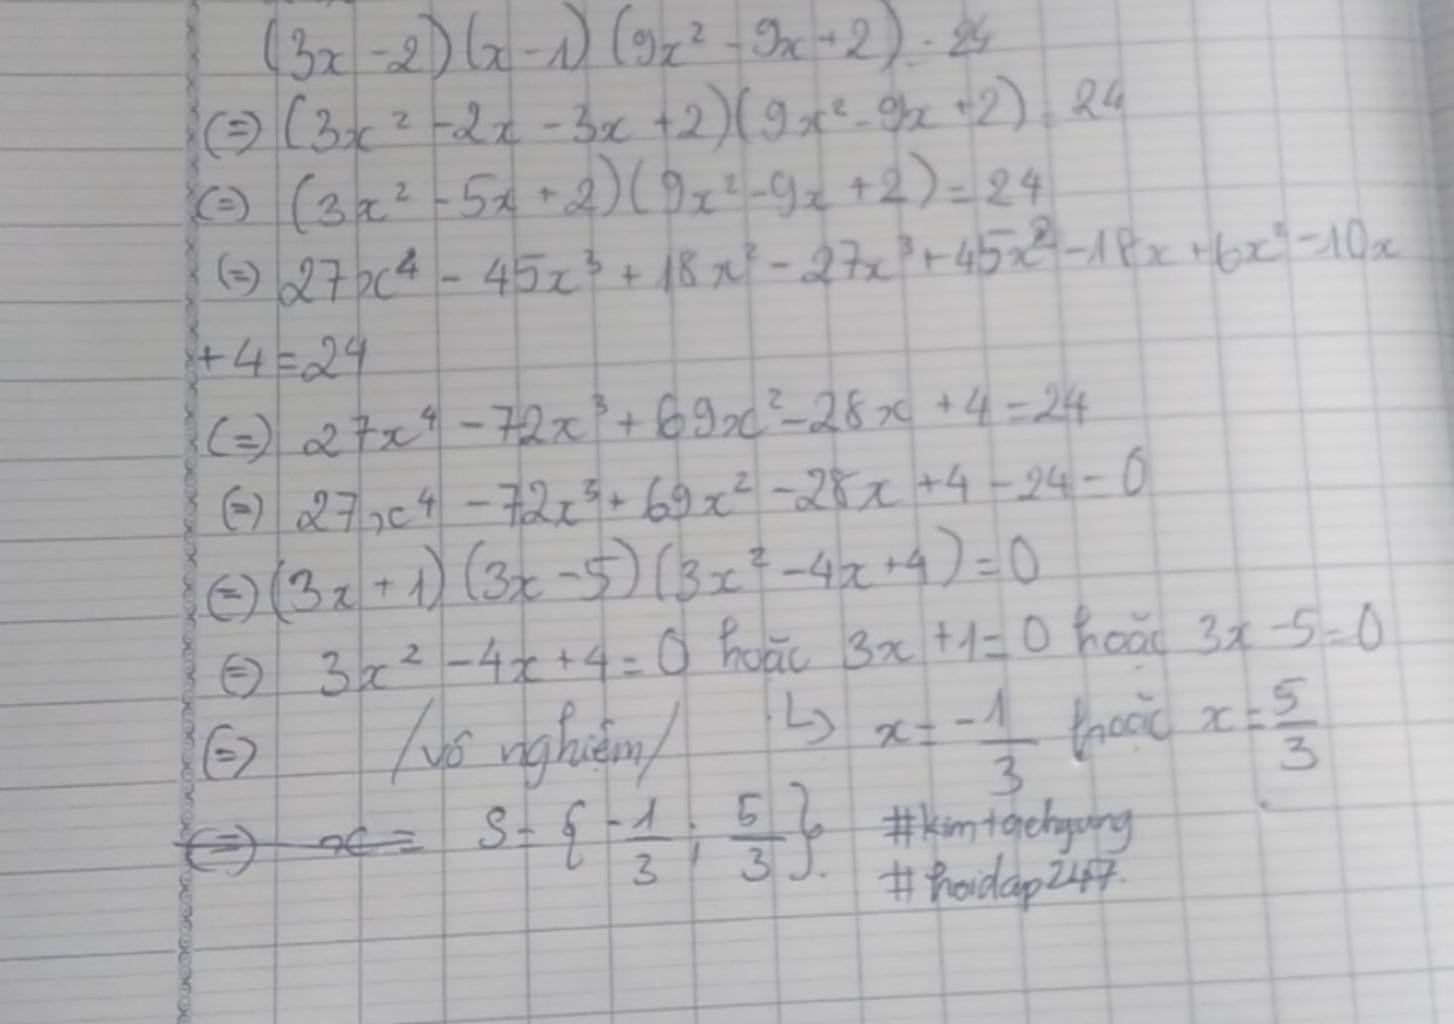 (3x - 2)(x - 1)(9x² - 9x + 2) = 24
(=) (3x² - 2x - 3x + 2)(9x² - 9x + 2) = 24
(=) (3x² - 5x + 2)(9x² - 9x + 2) = 24
(=) 27x⁴ - 45x³ + 18x² - 27x³ + 45x² - 18x + 6x² - 10x
+ 4 = 24
(=) 27x⁴ - 72x³ + 69x² - 28x + 4 = 24
(=) 27x⁴ - 72x³ + 69x² - 28x + 4 - 24 = 0
(=) (3x + 1)(3x - 5)(3x² - 4x + 4) = 0
(=) 3x² - 4x + 4 = 0 hoặc 3x + 1 = 0 hoặc 3x - 5 = 0
(=) /vô nghiệm/ ↳ x = -1/3 hoặc x = 5/3
(=) x = S = {-1/3; 5/3}. #kimtaehyung
#hoidap247.